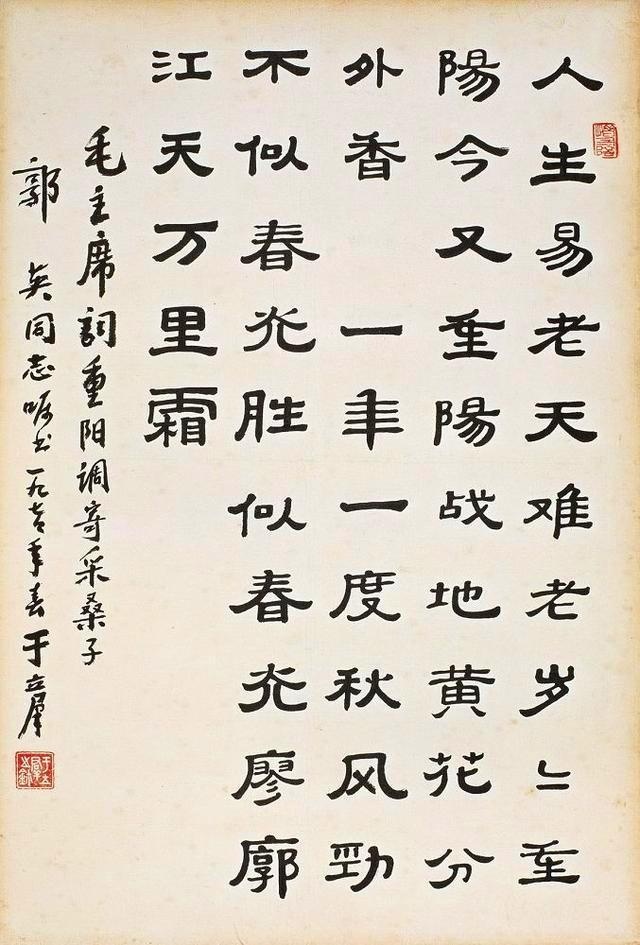 人生易老天难老岁〻重
陽今又重陽战地黄花分
外香　一年一度秋风勁
不似春光胜似春光廖廓
江天万里霜
毛主席詞重阳调寄采桑子
郭　英同志嘱书一九年春于立群